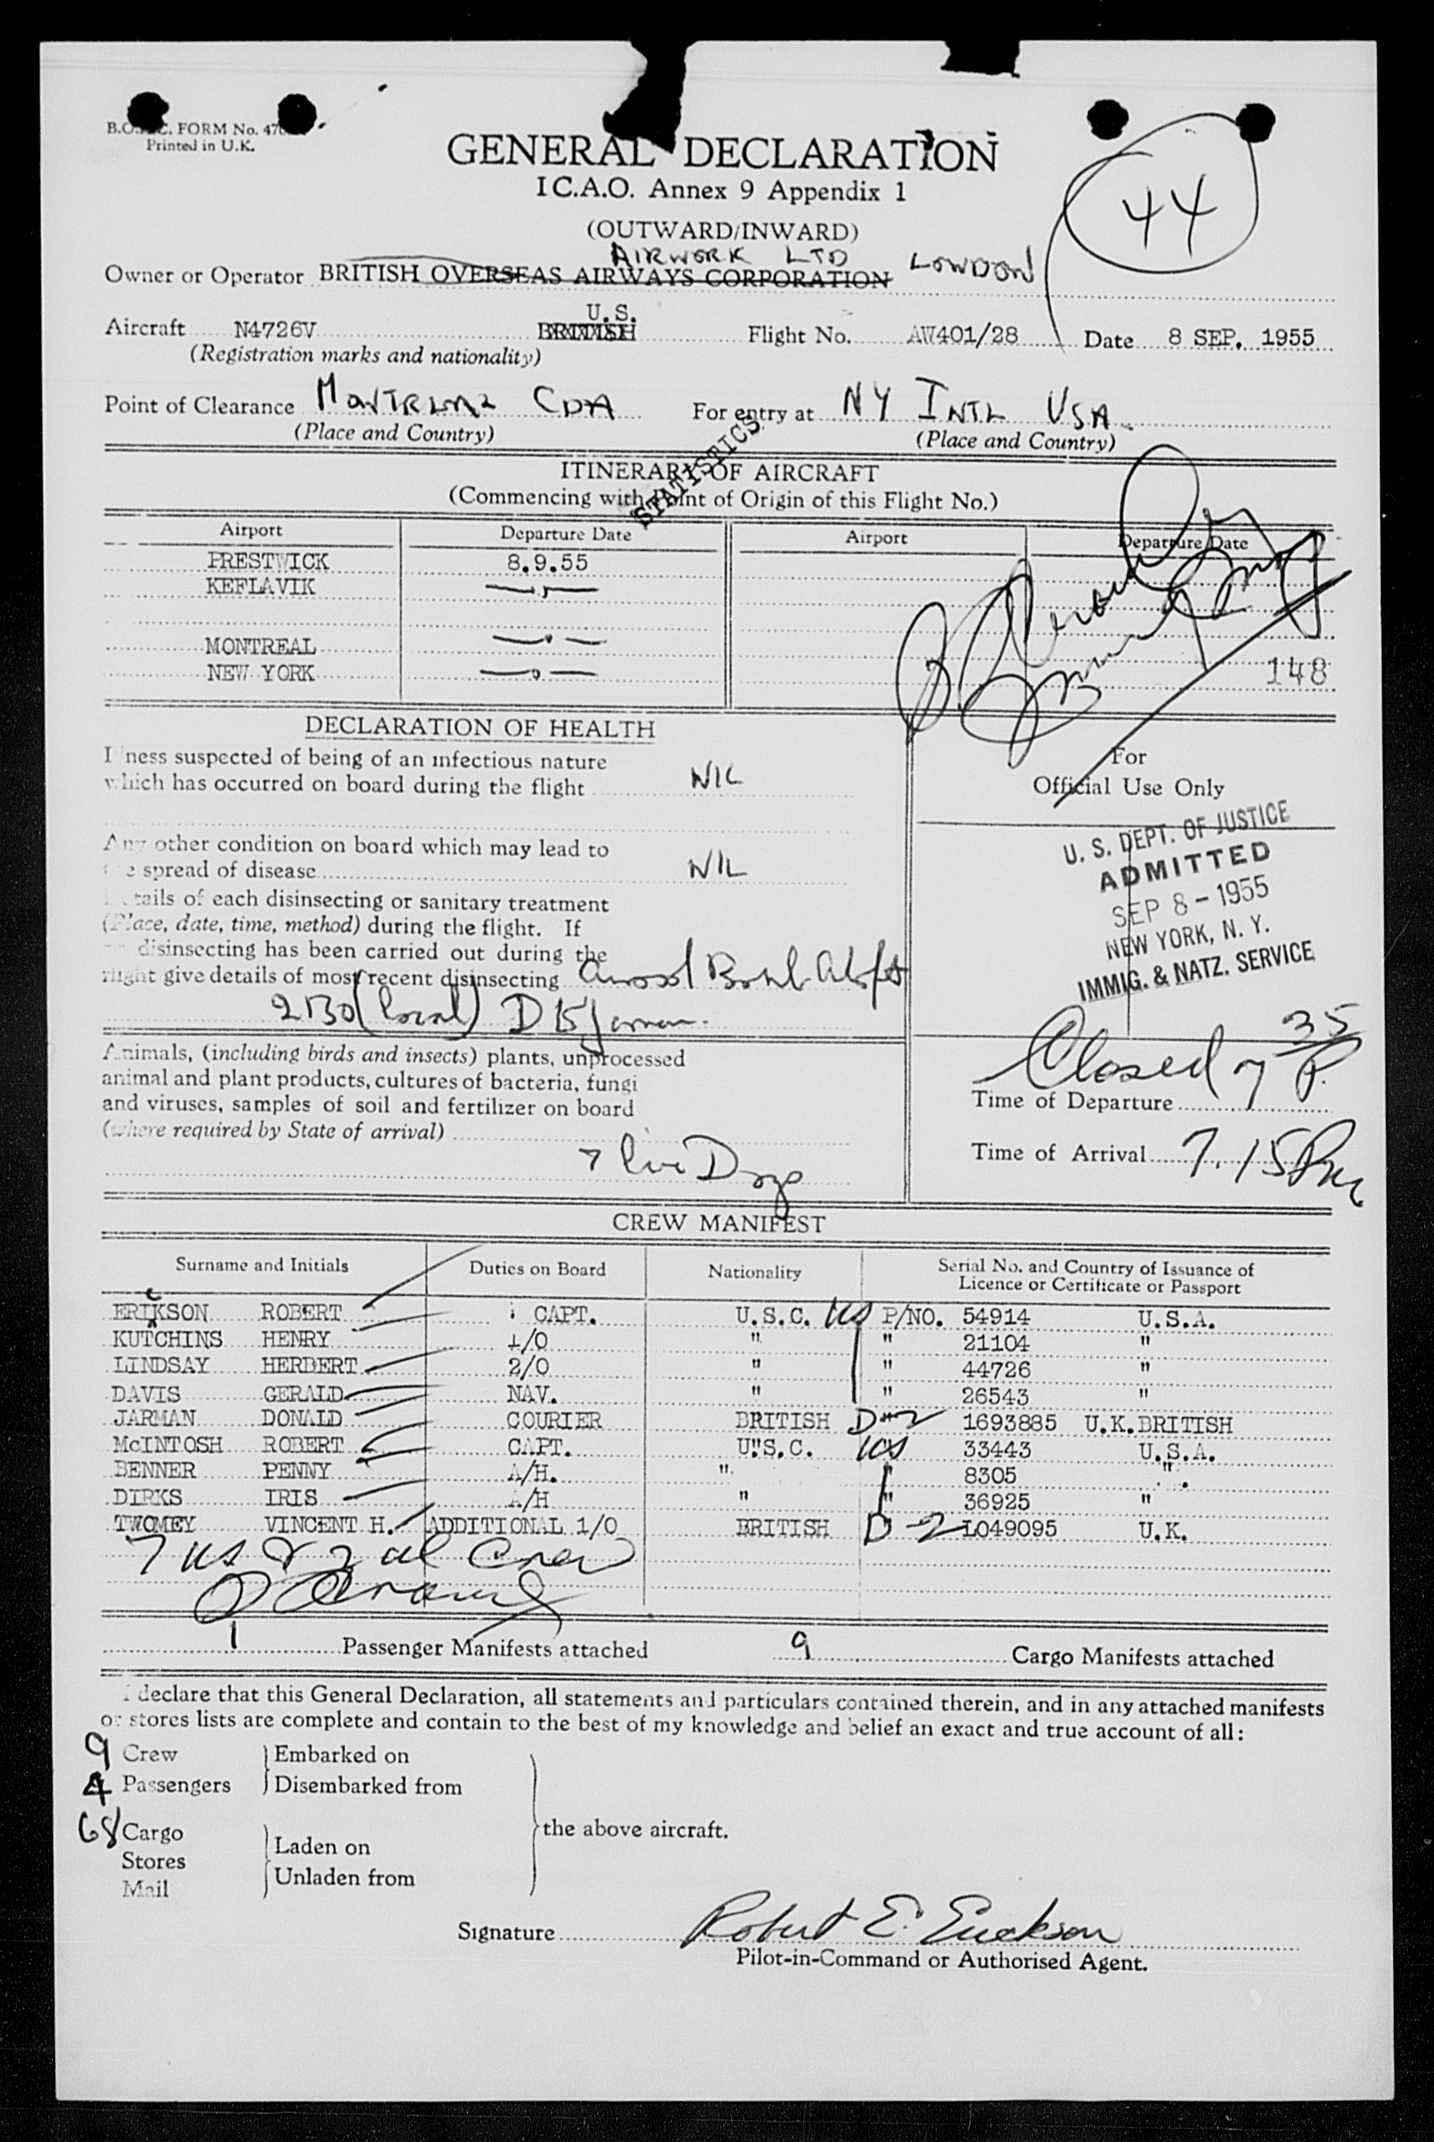 FORM No.
Printed in U.K.
GENERAL DECLARATION
I C.A.O. Annex 9 Appendix 1
44
(OUTWARD/INWARD)
AIRWORK LTD LONDON
Owner or Operator BRITISH OVERSEAS AIRWAYS CORPORATION
U.S.
Aircraft N4726V BRITISH Flight No. AW401/28 Date 8 SEP. 1955
(Registration marks and nationality)
Point of Clearance MONTREAL CDA For entry at NY INTL USA
(Place and Country) (Place and Country)
STATISTICS
ITINERARY OF AIRCRAFT
(Commencing with Point of Origin of this Flight No.)
Airport Departure Date Airport Departure Date
PRESTWICK 8.9.55
KEFLAVIK
MONTREAL
NEW YORK
148
DECLARATION OF HEALTH
I ness suspected of being of an infectious nature
which has occurred on board during the flight NIL
Any other condition on board which may lead to
the spread of disease NIL
Details of each disinsecting or sanitary treatment
(Place, date, time, method) during the flight. If
no disinsecting has been carried out during the
flight give details of most recent disinsecting
2130 (local) D Jarman.
Animals, (including birds and insects) plants, unprocessed
animal and plant products, cultures of bacteria, fungi
and viruses, samples of soil and fertilizer on board
(where required by State of arrival)
7 live Dogs
For
Official Use Only
U. S. DEPT. OF JUSTICE
ADMITTED
SEP 8 - 1955
NEW YORK, N. Y.
IMMIG. & NATZ. SERVICE
Closed 7 35 P.
Time of Departure
Time of Arrival 7.15 Pm
CREW MANIFEST
Surname and Initials Duties on Board Nationality Serial No. and Country of Issuance of
Licence or Certificate or Passport
c
ERIKSON ROBERT CAPT. U.S.C. US P/NO. 54914 U.S.A.
KUTCHINS HENRY 1/O " " 21104 "
LINDSAY HERBERT 2/O " " 44726 "
DAVIS GERALD NAV. " " 26543 "
JARMAN DONALD COURIER BRITISH D-2 1693885 U.K. BRITISH
McINTOSH ROBERT CAPT. U.S.C. US 33443 U.S.A.
BENNER PENNY A/H. " 8305 "
DIRKS IRIS A/H " " 36925 "
TWOMEY VINCENT H. ADDITIONAL 1/O BRITISH D-2 L049095 U.K.
7 US & 2 al Crew
1 Passenger Manifests attached 9 Cargo Manifests attached
I declare that this General Declaration, all statements and particulars contained therein, and in any attached manifests
or stores lists are complete and contain to the best of my knowledge and belief an exact and true account of all:
9 Crew Embarked on
4 Passengers Disembarked from
the above aircraft.
68 Cargo Laden on
Stores
Unladen from
Mail
Signature Robert E. Erickson
Pilot-in-Command or Authorised Agent.